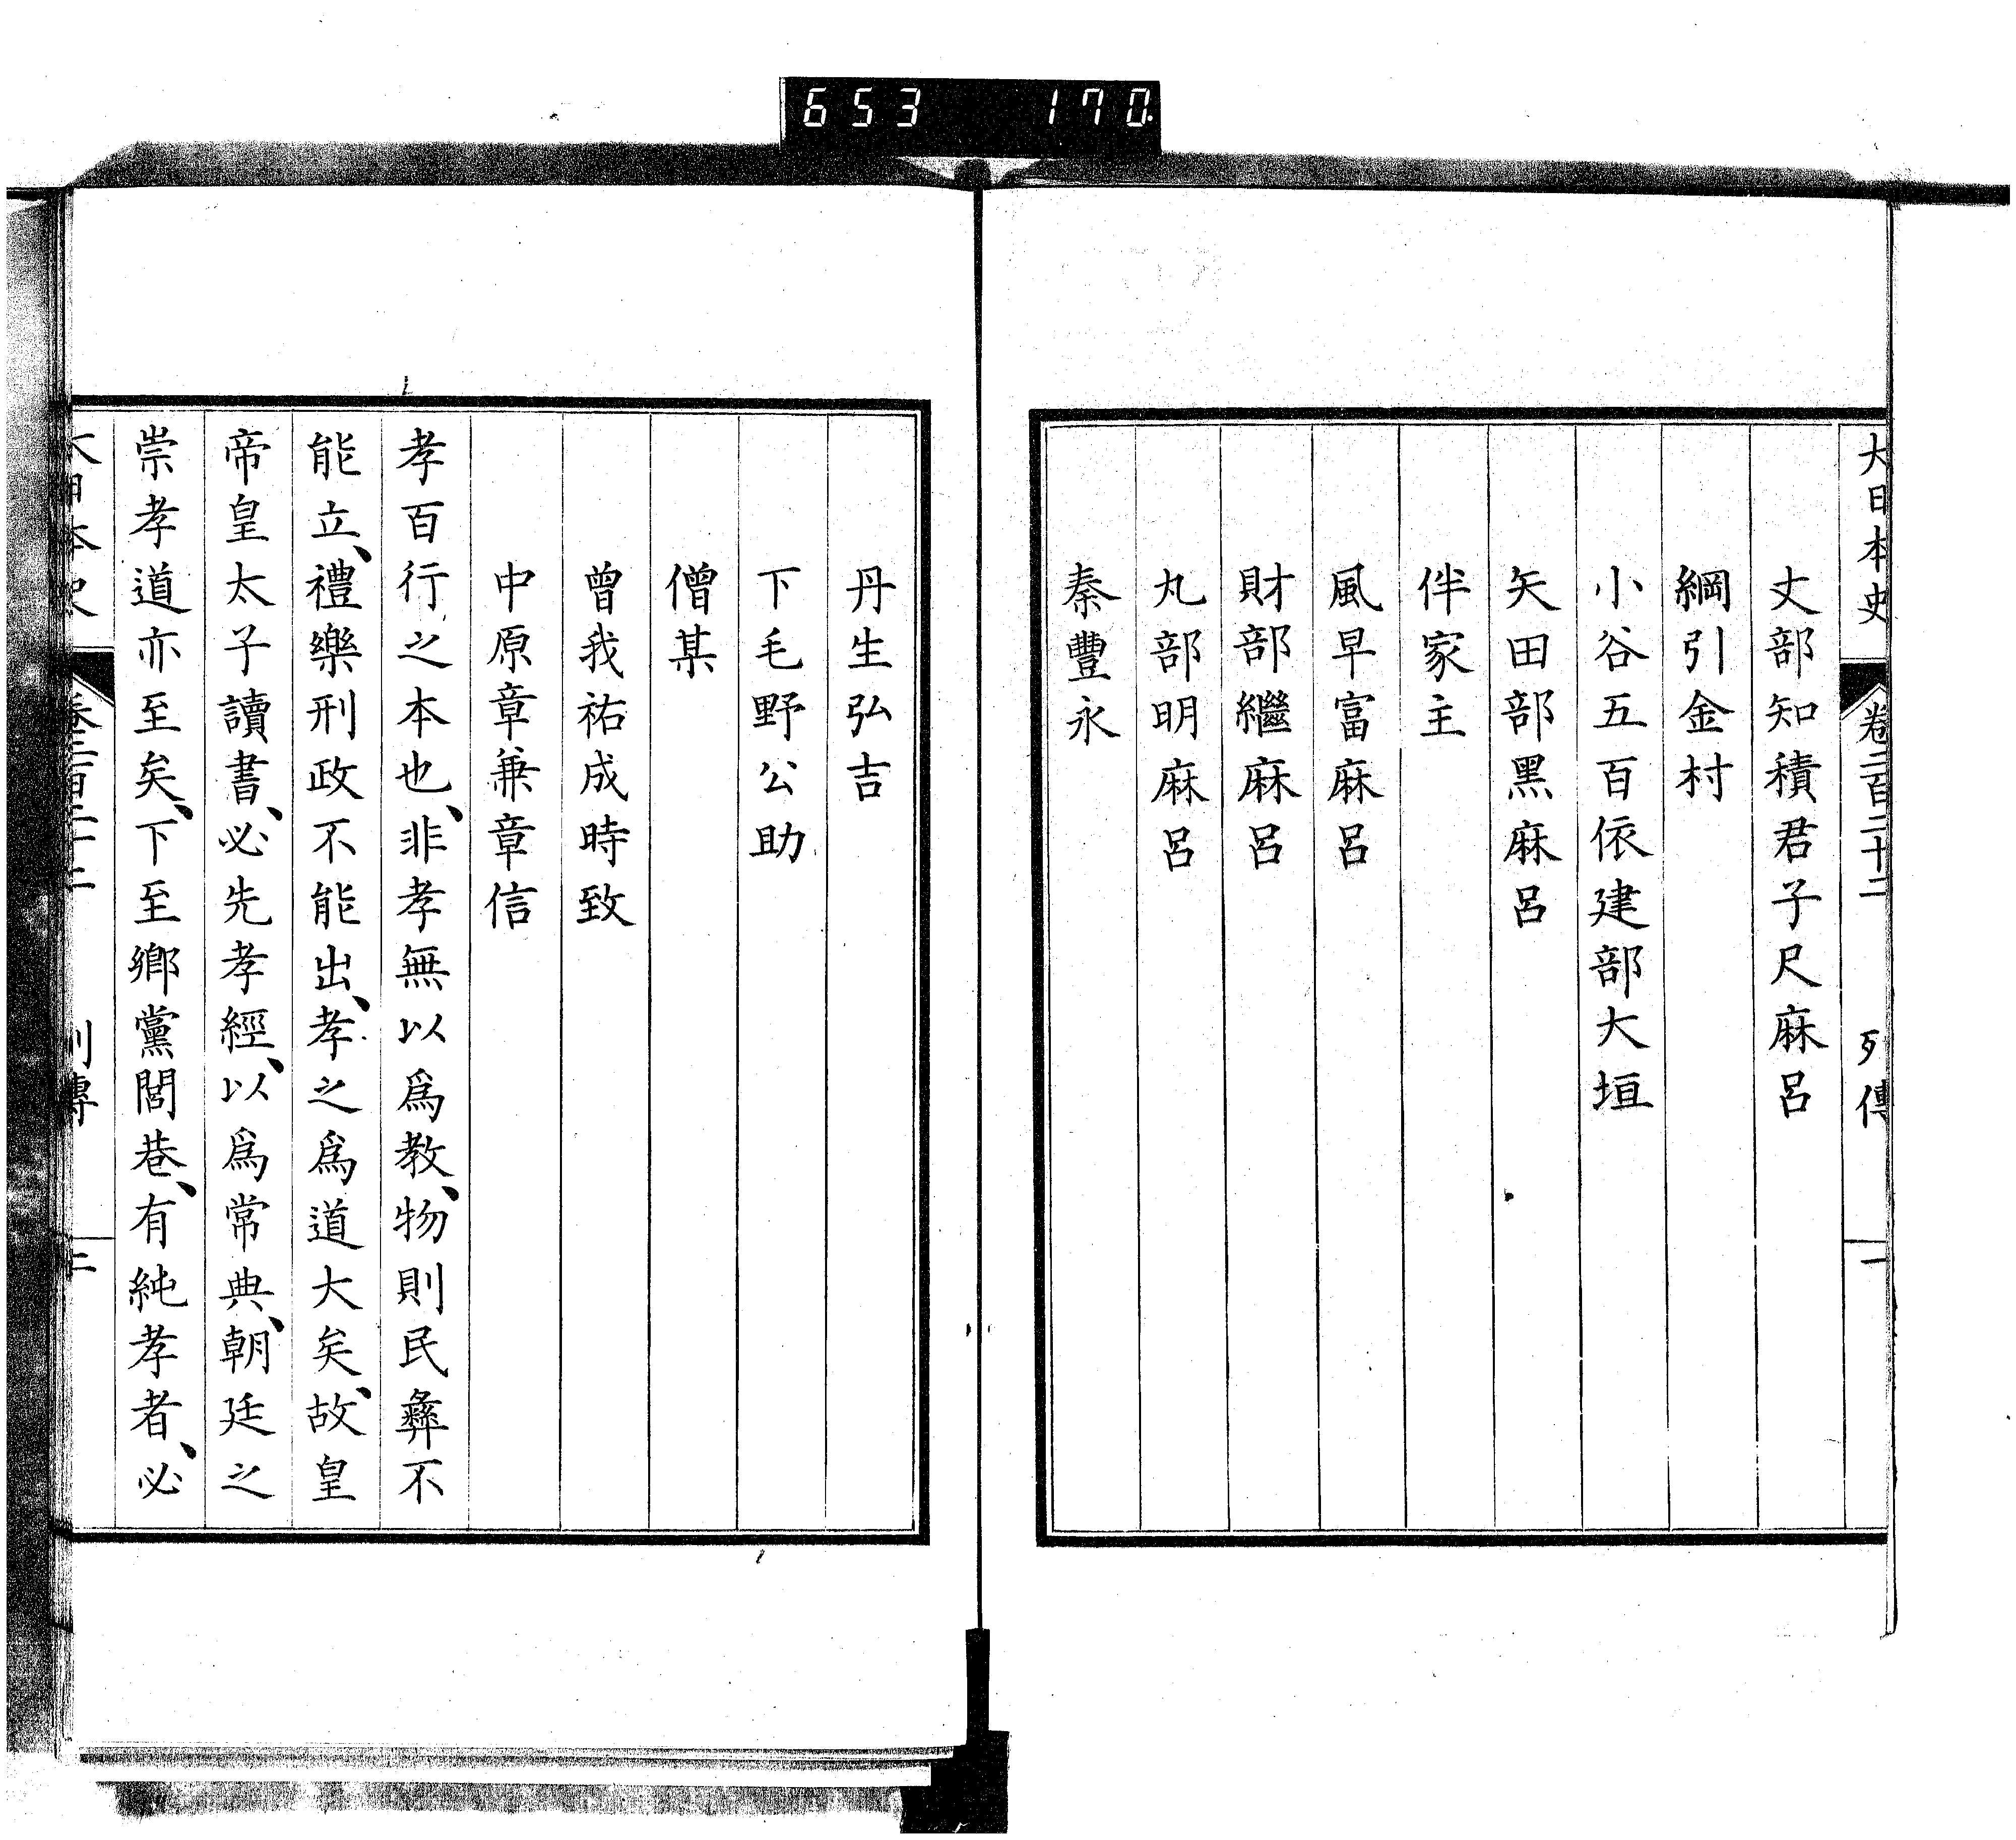 653 170
大日本史 卷二百二十二 列傳 一
丈部知積君子尺麻呂
綱引金村
小谷五百依建部大垣
矢田部黑麻呂
伴家主
風早富麻呂
財部繼麻呂
丸部明麻呂
秦豐永
丹生弘吉
下毛野公助
僧某
曾我祐成時致
中原章兼章信
孝百行之本也、非孝無以爲教、物則民彝不
能立、禮樂刑政不能出、孝之爲道大矣、故皇
帝皇太子讀書、必先孝經、以爲常典、朝廷之
崇孝道亦至矣、下至鄉黨閭巷、有純孝者、必
大日本史 卷二百二十二 列傳 二